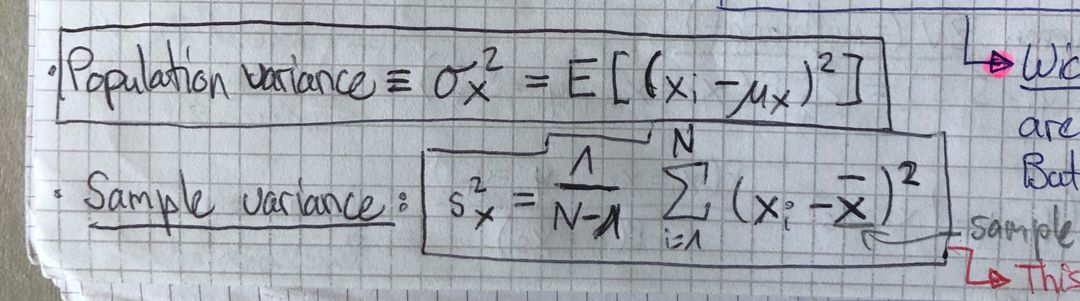 · Population variance ≡ σx² = E[(xi - μx)²]
· Sample variance: sx² = 1/(N-1) Σ_{i=1}^{N} (xi - x̄)²
are
sample
This